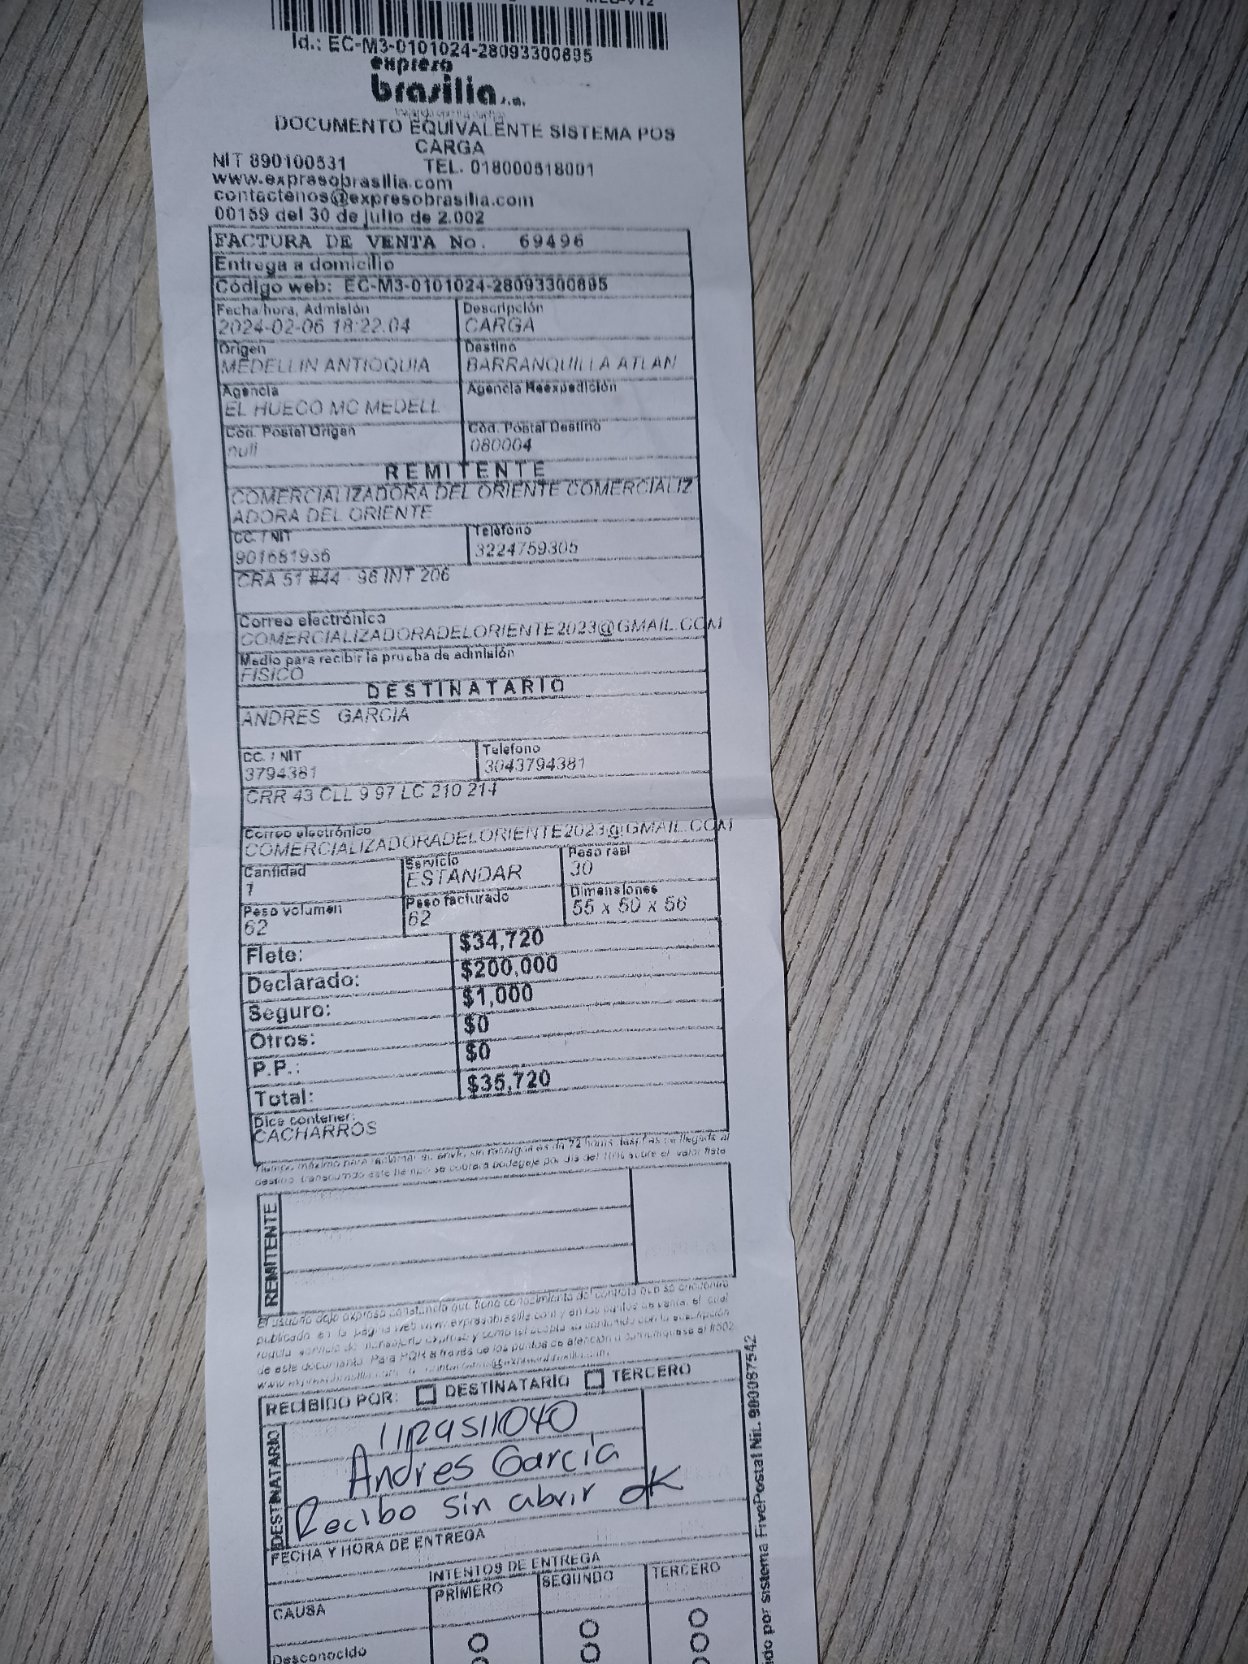 Id.: EC-M3-0101024-28093300695
expreso
brasilia s.a.
DOCUMENTO EQUIVALENTE SISTEMA POS
CARGA
NIT 890100531 TEL. 018000518001
www.expresobrasilia.com
contactenos@expresobrasilia.com
00159 del 30 de julio de 2.002
FACTURA DE VENTA No. 69496
Entrega a domicilio
Código web: EC-M3-0101024-28093300695
Fecha/hora, Admisión Descripción
2024-02-06 18:22:04 CARGA
Origen Destino
MEDELLIN ANTIOQUIA BARRANQUILLA ATLAN
Agencia Agencia Reexpedición
EL HUECO MC MEDELL
Cód. Postal Origen Cód. Postal Destino
null 080004
REMITENTE
COMERCIALIZADORA DEL ORIENTE COMERCIALIZ
ADORA DEL ORIENTE
CC. / NIT Teléfono
901681936 3224759305
CRA 51 #44 - 96 INT 206
Correo electrónico
COMERCIALIZADORADELORIENTE2023@GMAIL.COM
Medio para recibir la prueba de admisión
FISICO
DESTINATARIO
ANDRES GARCIA
CC. / NIT Telefono
3794381 3043794381
CRR 43 CLL 9 97 LC 210 214
Correo electrónico
COMERCIALIZADORADELORIENTE2023@GMAIL.COM
Cantidad Servicio Peso real
1 ESTANDAR 30
Peso volumen Peso facturado Dimensiones
62 62 55 x 50 x 56
Flete: $34,720
Declarado: $200,000
Seguro: $1,000
Otros: $0
P.P.: $0
Total: $35,720
Dice contener:
CACHARROS
REMITENTE
RECIBIDO POR: DESTINATARIO TERCERO
DESTINATARIO
Andres Garcia
Recibo sin abrir ok
FECHA Y HORA DE ENTREGA
INTENTOS DE ENTREGA
CAUSA PRIMERO SEGUNDO TERCERO
Desconocido
por sistema FivePostal Nit. 900087542